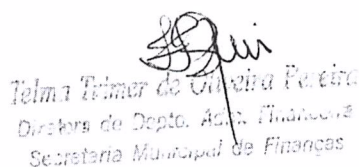 Telma Trimer de Oliveira Pereira
Diretora de Depto. Adm. Financeira
Secretaria Municipal de Finanças